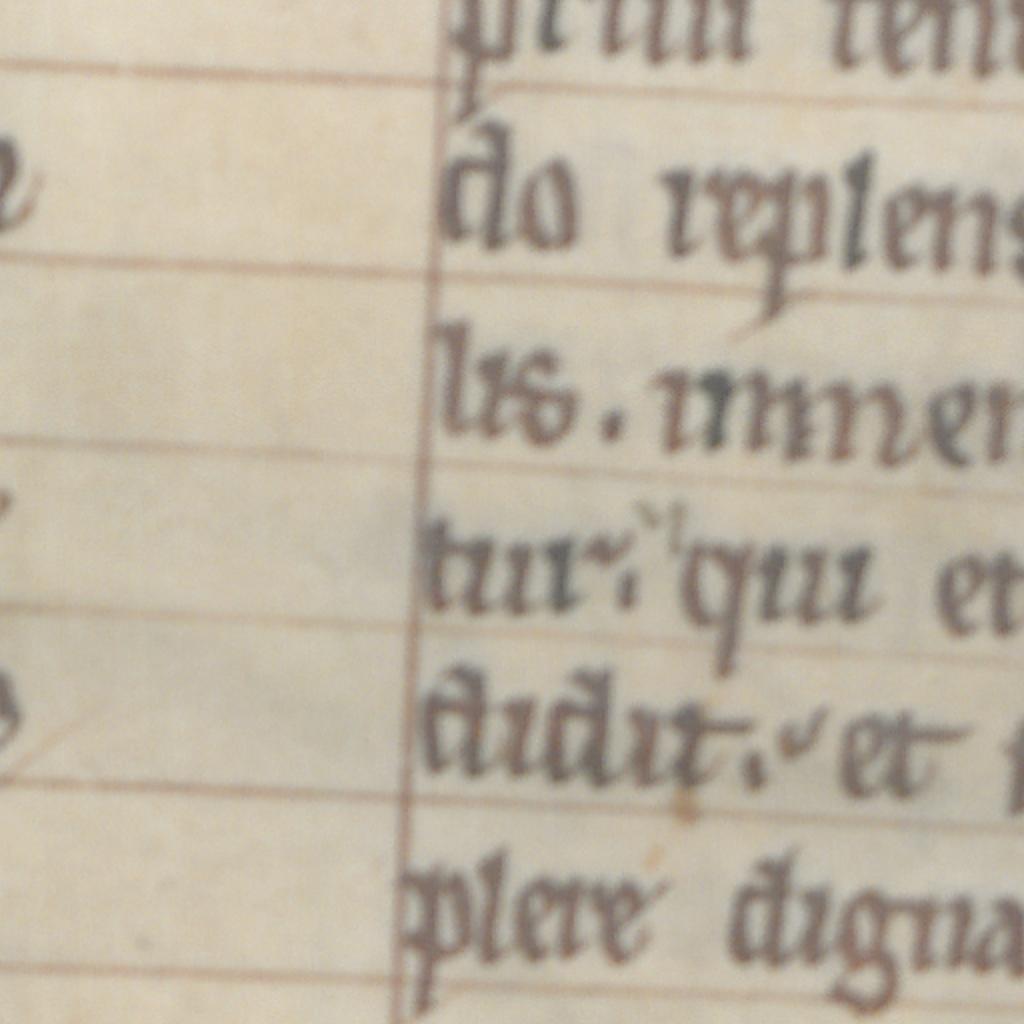 do replens
lis. inner
tur. qui et
didit. et
plere digna